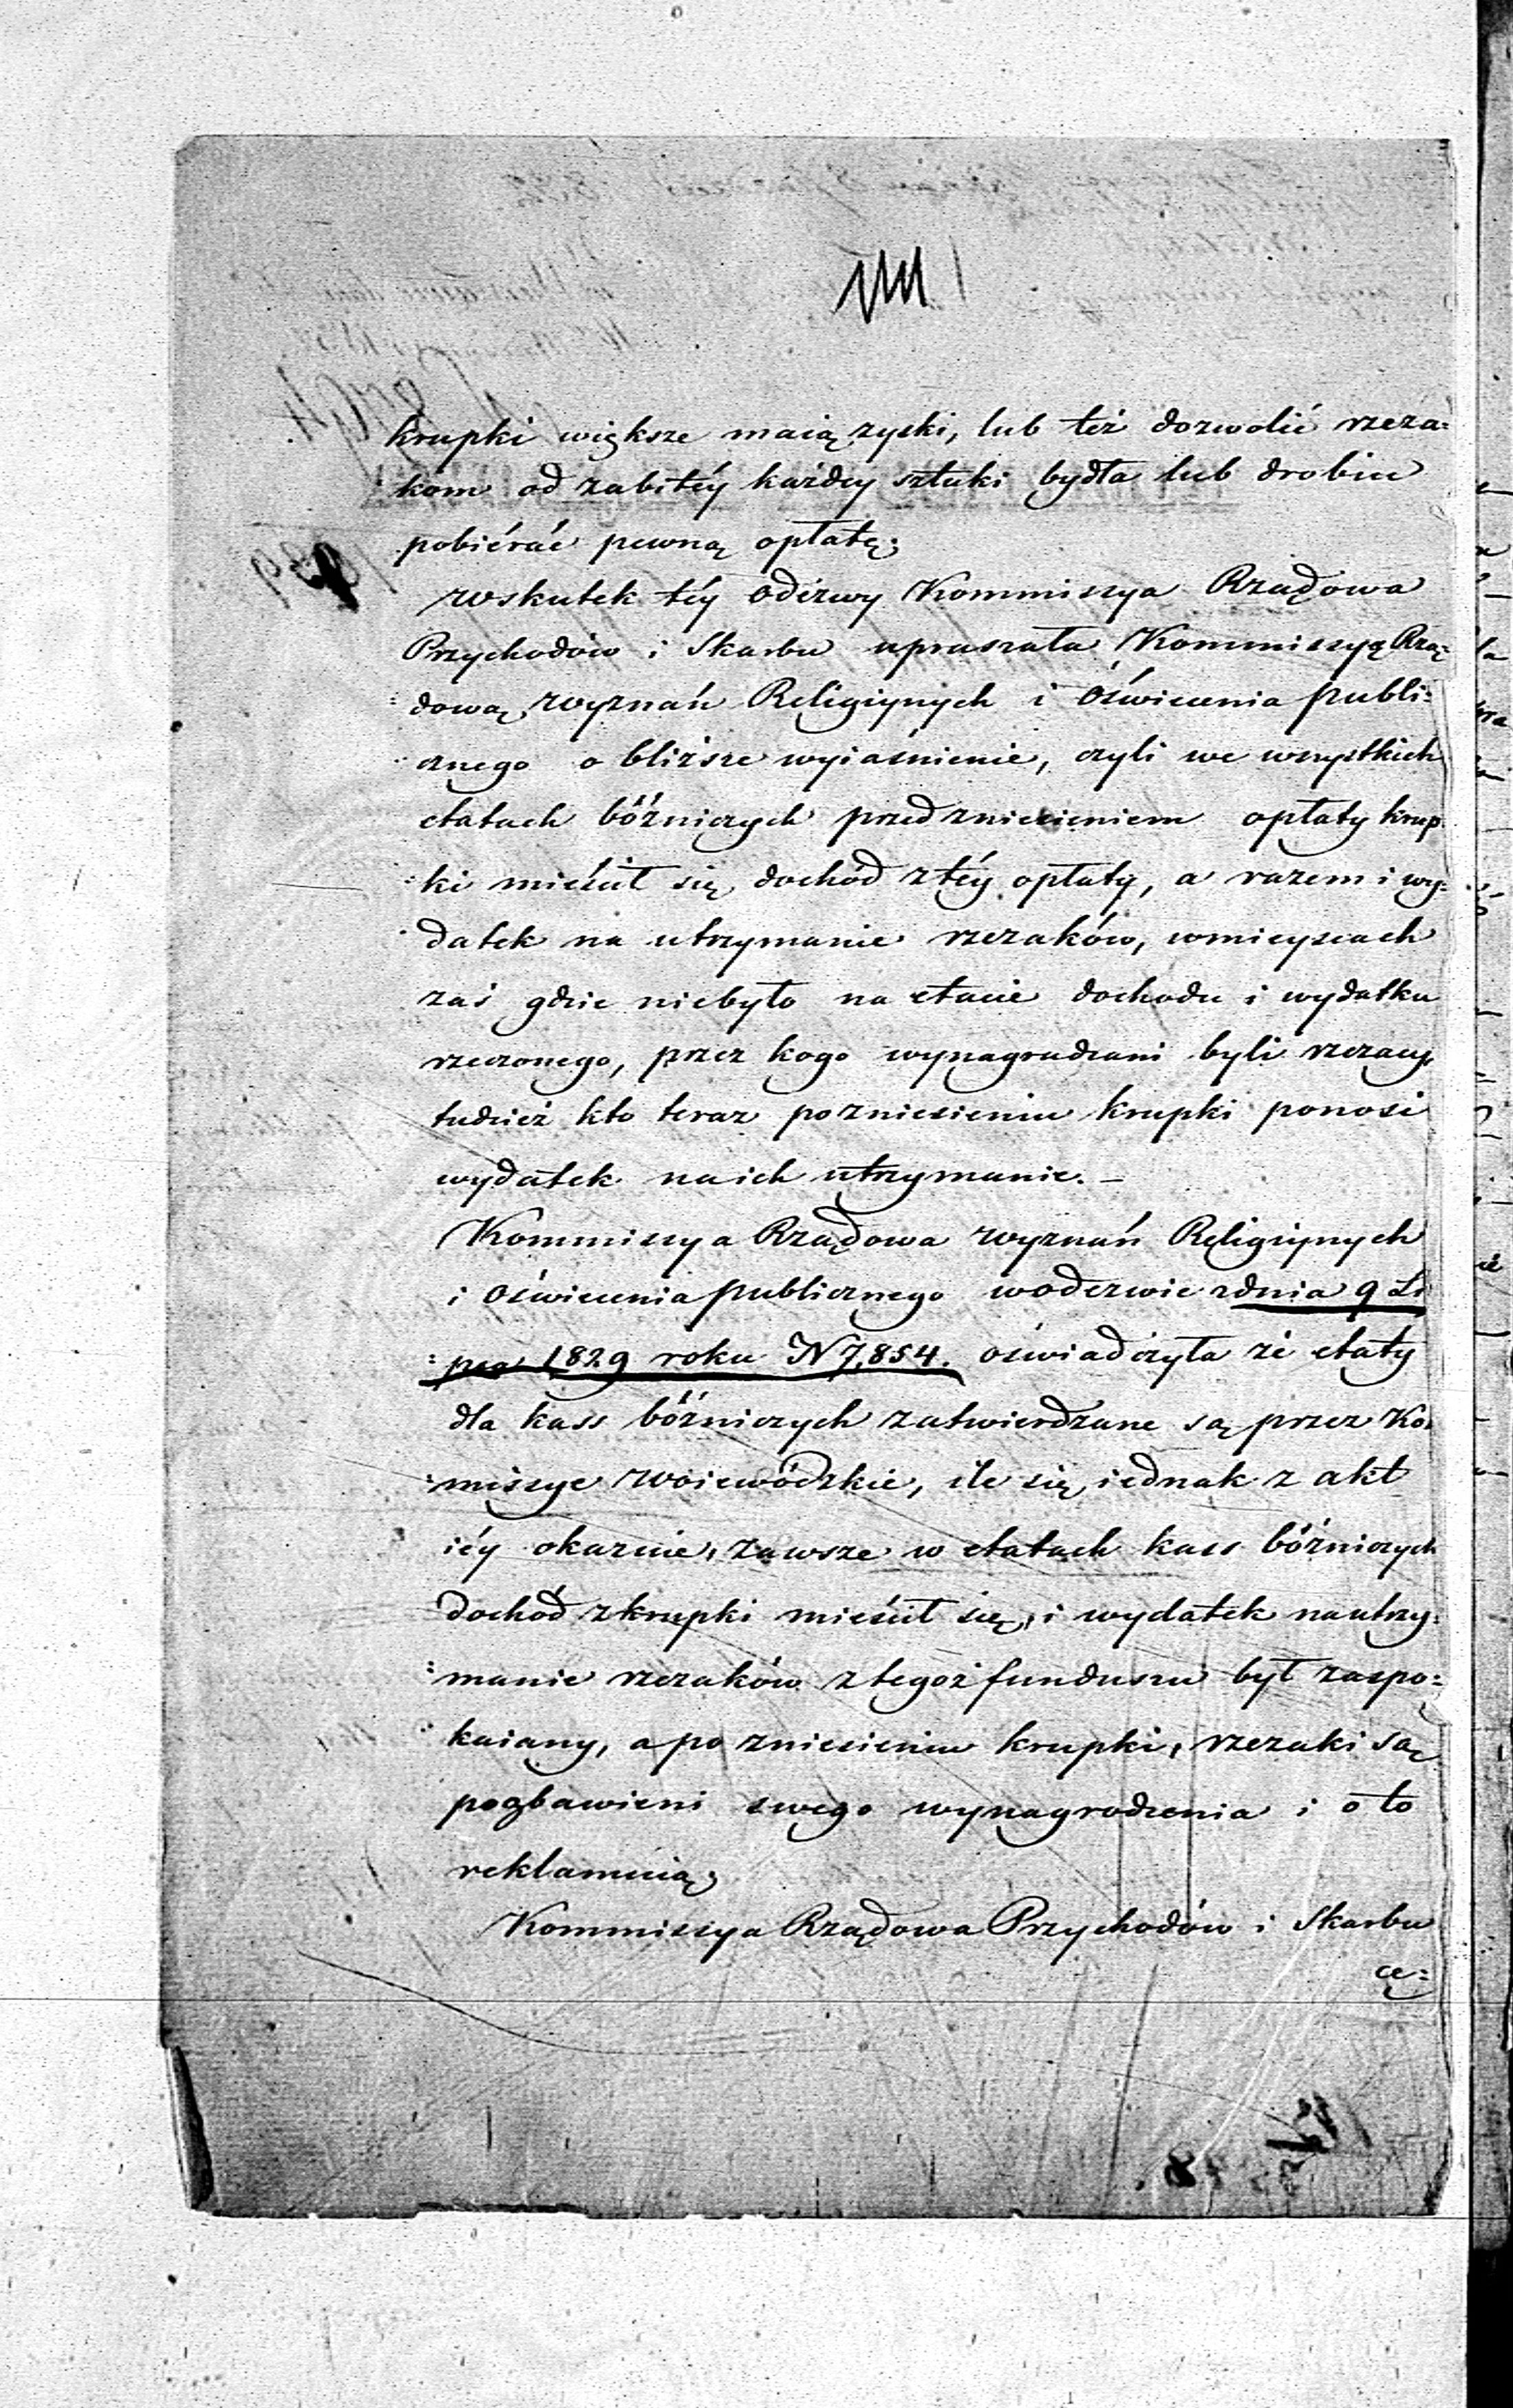 krupki większe maią zyski, lub też dozwolić rzeza=
kom od zabitéy każdéy sztuki bydła lub drobiu
pobiérać pewną opłatę;
wskutek téy odezwy Kommissya Rządowa
Przychodów i Skarbu upraszała Kommissyą Rzą=
=dową wyznań Religiynych i Oświecenia publi=
cznego o bliższe wyiaśnienie, czyli we wszystkich
etatach bóżniczych przed zniesieniem opłaty krup
=ki mieścił się dochód z téy opłaty, a razem i wy=
datek na utrzymanie rzezaków, w mieyscach
zaś gdzie niebyło na etacie dochodu i wydatku
rzeczonego, przez kogo wynagradzani byli rzezacy,
tudzież kto teraz po zniesieniu krupki ponosi
wydatek na ich utrzymanie. –
Kommissya Rządowa wyznań Religiynych
i Oświecenia publicznego w odezwie z dnia 9 Li
=pca 1829 roku N 7,854. oświadczyła że etaty
dla kass bóżniczych zatwierdzane są przez Ko=
=missye Woiewódzkie, ile się iednak z akt
iéy okazuie, zawsze w etatach kass bóżniczych
dochód z krupki mieścił się, i wydatek na utrzy=
=manie rzezaków z tegoż funduszu był zaspo=
kaiany, a po zniesieniu krupki, rzezaki są
pozbawieni swego wynagrodzenia i o to
reklamuią;
Kommissya Rządowa Przychodów i Skarbu